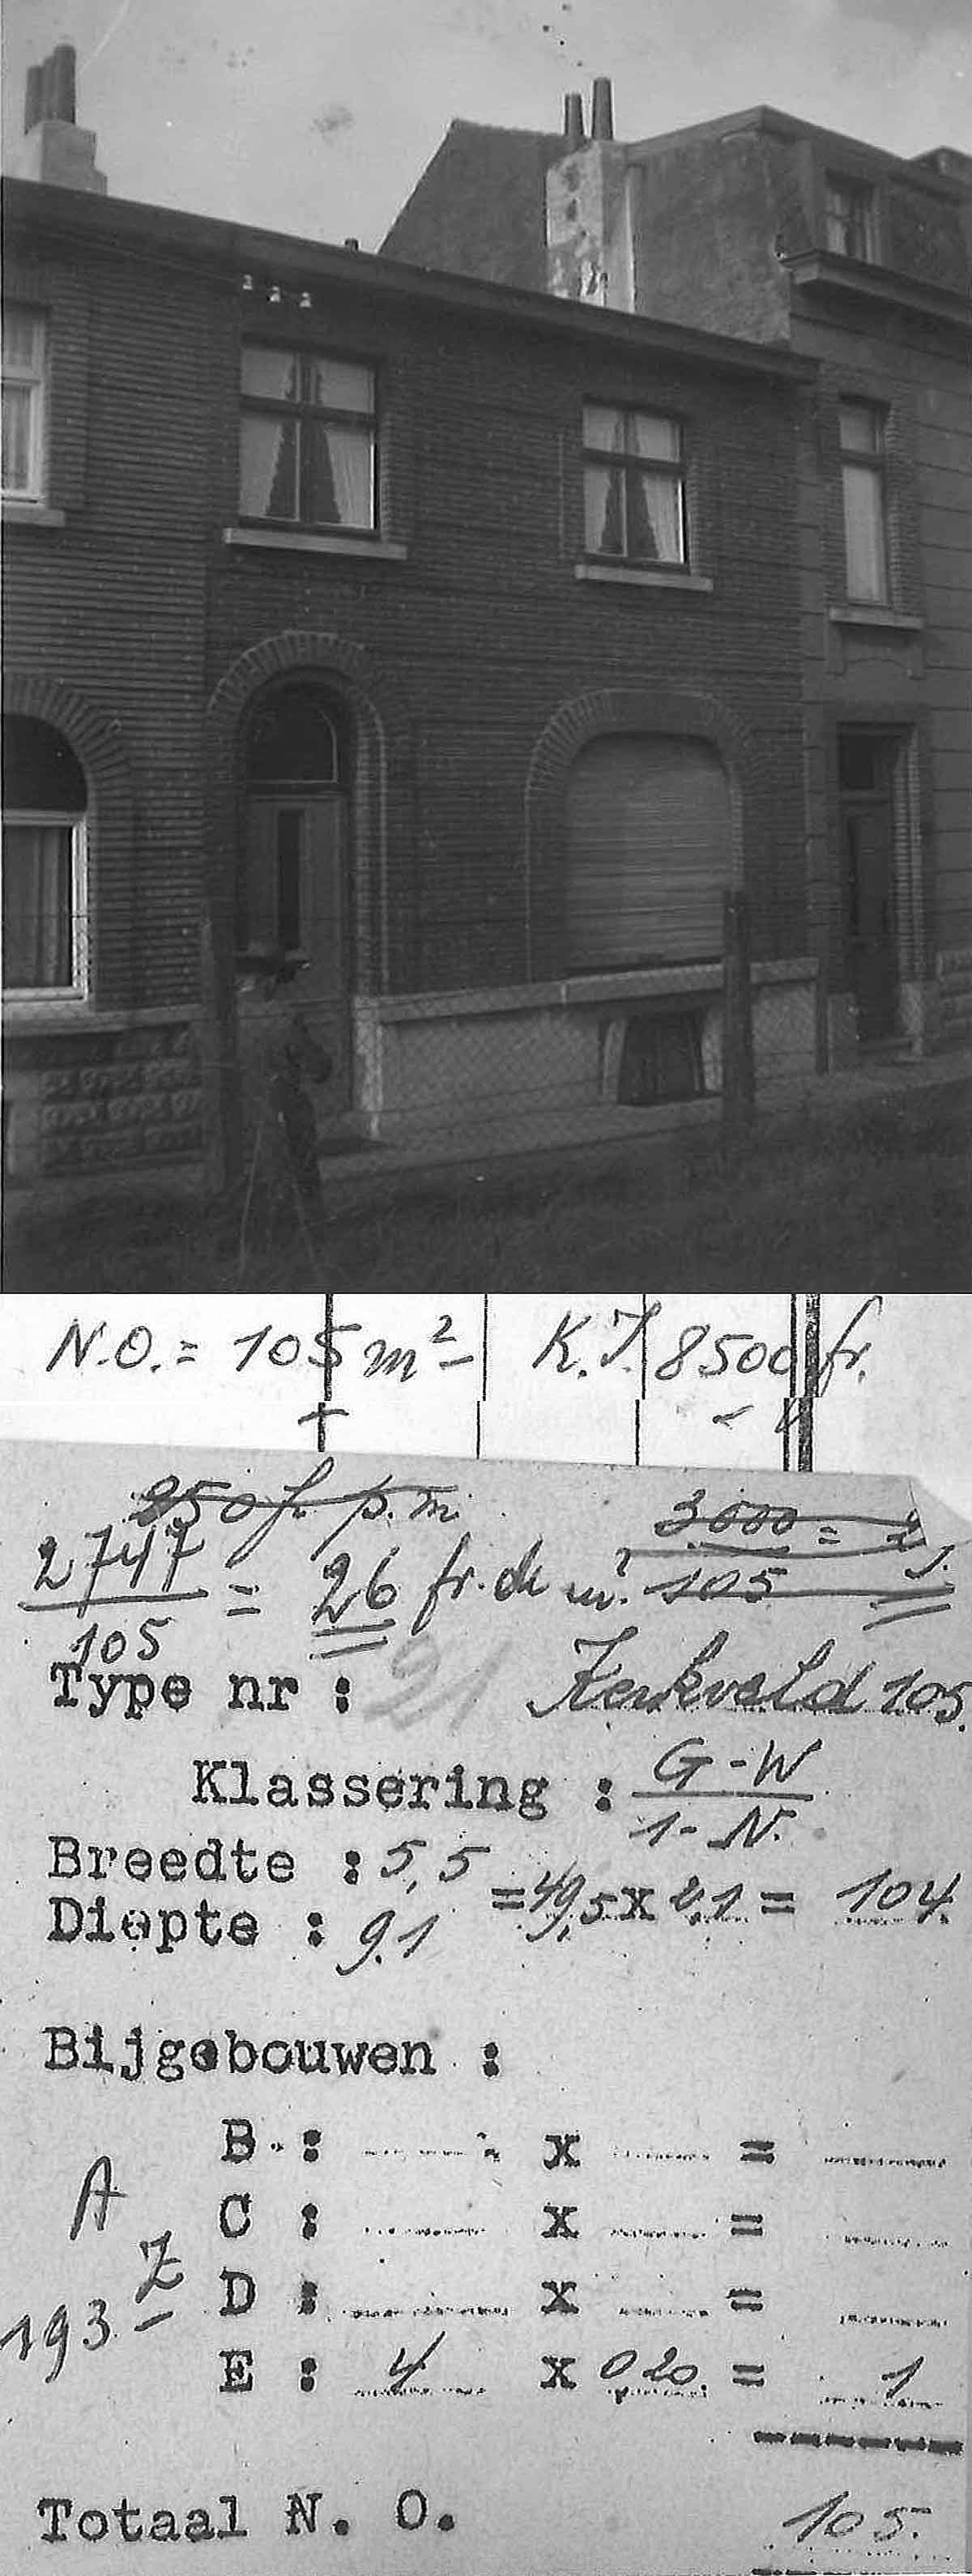 N.O. = 105 m² K.I. 8500 fr.
250 fr. p.m.
3000 / 105 =
2747 / 105 = 26 fr. de m²
Type nr : 21 Kerkveld 105.
Klassering : G-W / 1-N.
Breedte : 5,5
= 49,5 x 2,1 = 104
Diepte : 9.1
Bijgebouwen :
B. : x =
A
C : x =
Z
D : x =
193-
E : 4 x 0 20 = 1
Totaal N. O. 105.